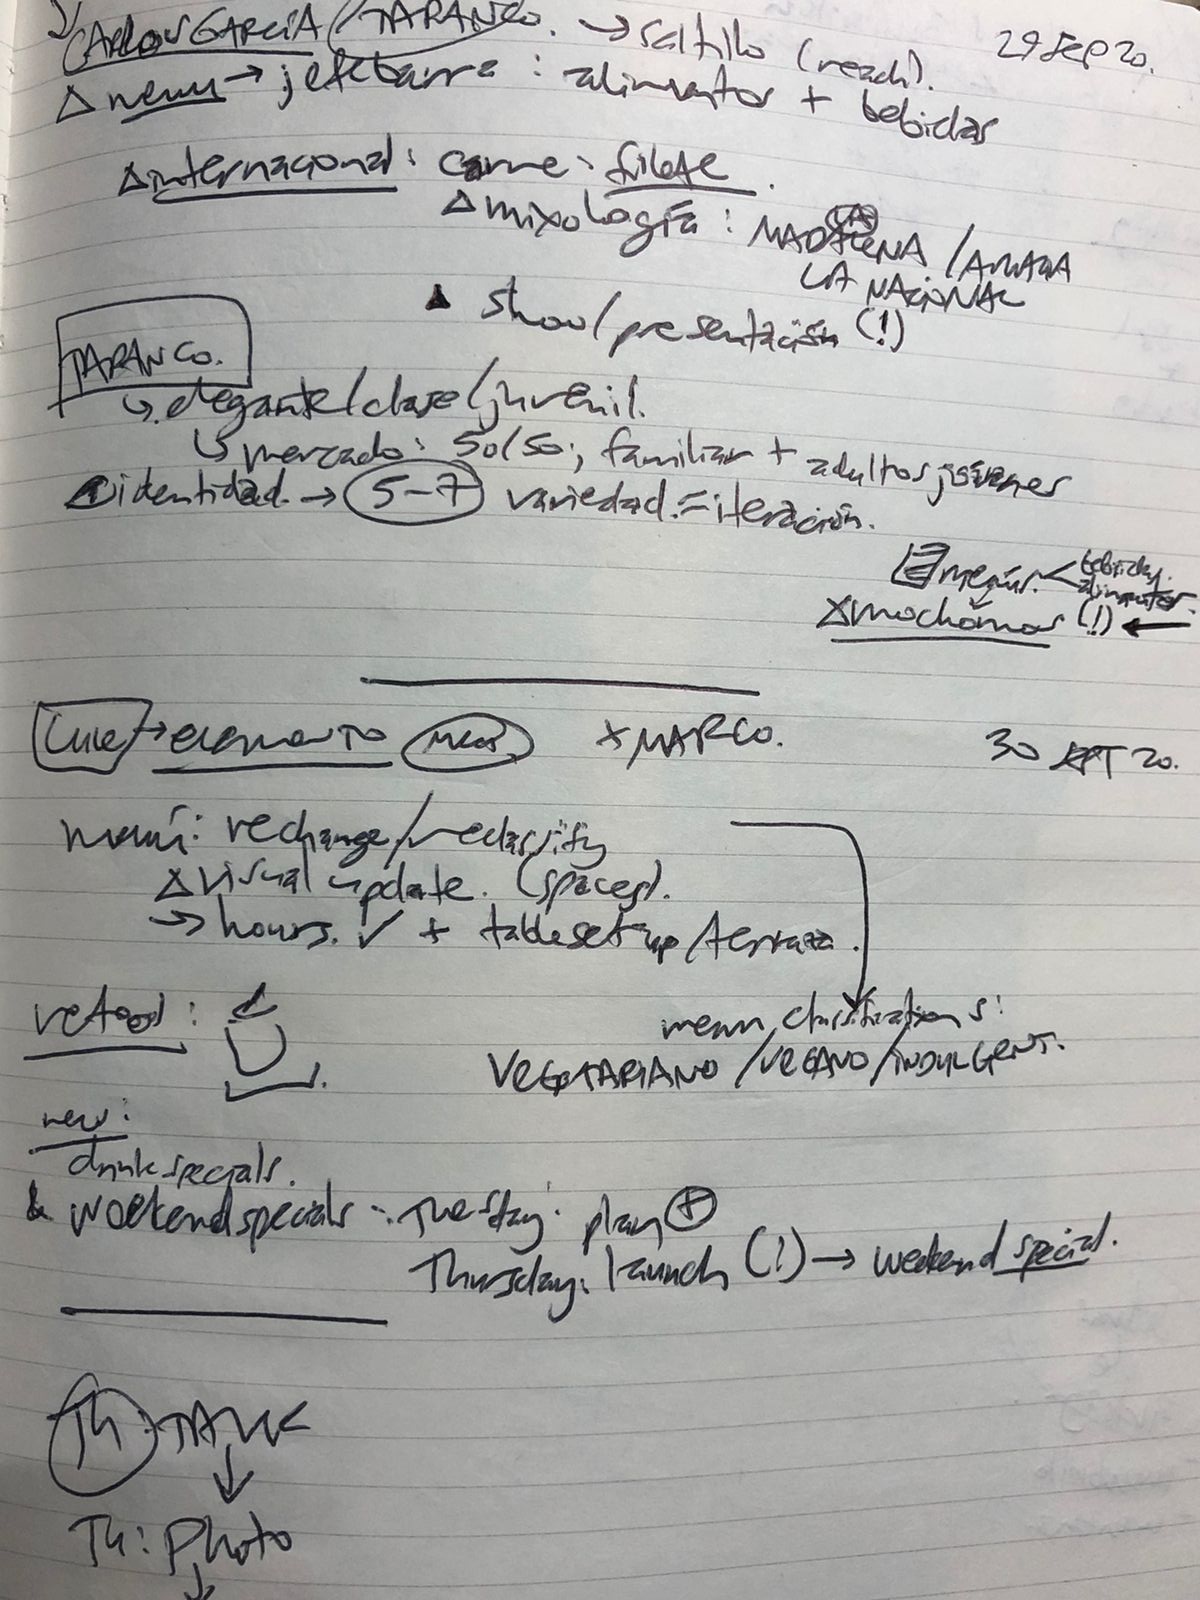 CARLOS GARCÍA / TARANCO. → saltillo (reach). 29 SEP 20.
Δ menu → jefe barra : alimentos + bebidas
Δ internacional : carne : filete.
Δ mixología : MADALENA / AMAGA
LA NACIONAL
show / presentación (!)
TARANCO.
↳ elegante / clase / juvenil.
↳ mercado : 50/50 ; familiar + adultos jóvenes
identidad → 5-7 variedad = iteración.
menús. < bebidas.
alimentos.
Δ mochomos (!) ←
→ elemento x MARCO. 30 SEPT 20.
menú : rechange / reclassify
Δ visual update. (spaces).
→ hours. ✓ + table set up / terraza.
menu classifications :
VEGETARIANO / VEGANO / INDULGENT.
new :
drink specials.
& weekend specials : Tuesday : play +
Thursday : launch (!) → weekend special.
TH : TALK
↓
TH : Photo
↓